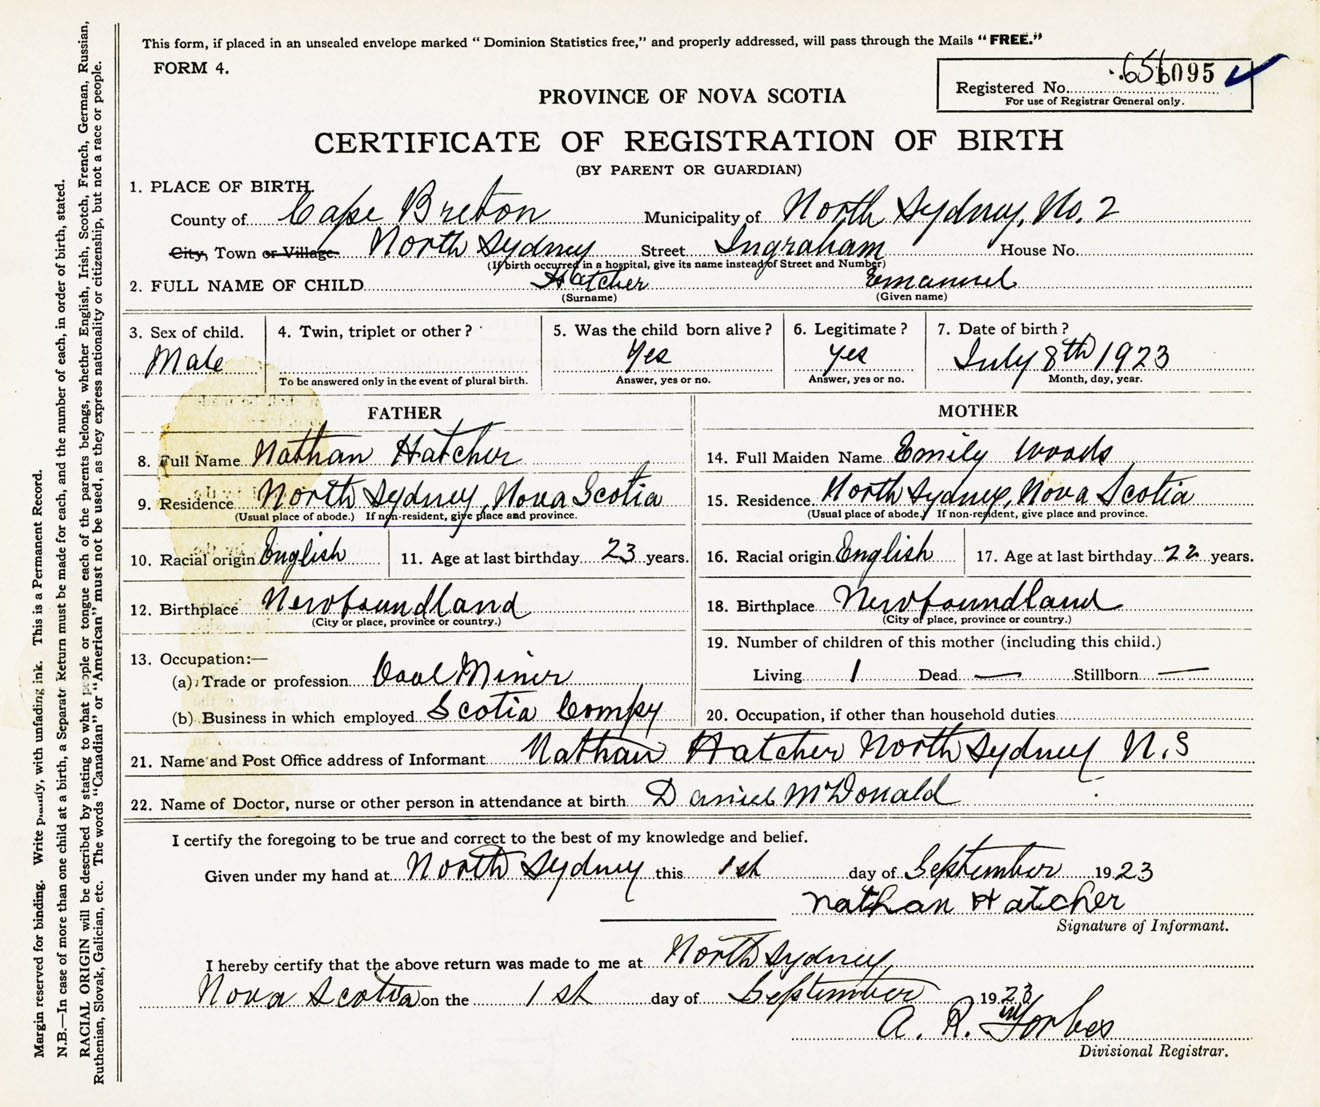 This form, if placed in an unsealed envelope marked “ Dominion Statistics free,” and properly addressed, will pass through the Mails “ FREE.”
FORM 4.
Registered No. 656095
For use of Registrar General only.
PROVINCE OF NOVA SCOTIA
CERTIFICATE OF REGISTRATION OF BIRTH
(BY PARENT OR GUARDIAN)
1. PLACE OF BIRTH.
County of Cape Breton Municipality of North Sydney, No. 2
City, Town or Village. North Sydney Street Ingraham House No.
(If birth occurred in a hospital, give its name instead of Street and Number)
2. FULL NAME OF CHILD Hatcher Emanuel
(Surname) (Given name)
3. Sex of child. 4. Twin, triplet or other ? 5. Was the child born alive ? 6. Legitimate ? 7. Date of birth ?
Male Yes Yes July 8th 1923
To be answered only in the event of plural birth. Answer, yes or no. Answer, yes or no. Month, day, year.
FATHER
8. Full Name Nathan Hatcher
9. Residence North Sydney, Nova Scotia
(Usual place of abode.) If non-resident, give place and province.
10. Racial origin English 11. Age at last birthday 23 years.
12. Birthplace Newfoundland
(City or place, province or country.)
13. Occupation:—
(a) Trade or profession Coal Miner
(b) Business in which employed Scotia Compy
MOTHER
14. Full Maiden Name Emily Woods
15. Residence. North Sydney, Nova Scotia
(Usual place of abode.) If non-resident, give place and province.
16. Racial origin English 17. Age at last birthday 22 years.
18. Birthplace Newfoundland
(City or place, province or country.)
19. Number of children of this mother (including this child.)
Living 1 Dead — Stillborn —
20. Occupation, if other than household duties
21. Name and Post Office address of Informant Nathan Hatcher North Sydney N.S
22. Name of Doctor, nurse or other person in attendance at birth Daniel McDonald
I certify the foregoing to be true and correct to the best of my knowledge and belief.
Given under my hand at North Sydney this 1st day of September 1923
Nathan Hatcher
Signature of Informant.
I hereby certify that the above return was made to me at North Sydney
Nova Scotia on the 1st day of September 1923
A. R. Forbes
Divisional Registrar.
Margin reserved for binding. Write plainly, with unfading ink. This is a Permanent Record.
N.B.—In case of more than one child at a birth, a Separate Return must be made for each, and the number of each, in order of birth, stated.
RACIAL ORIGIN will be described by stating to what people or tongue each of the parents belongs, whether English, Irish, Scotch, French, German, Russian,
Ruthenian, Slovak, Galician, etc. The words “Canadian” or “American” must not be used, as they express nationality or citizenship, but not a race or people.